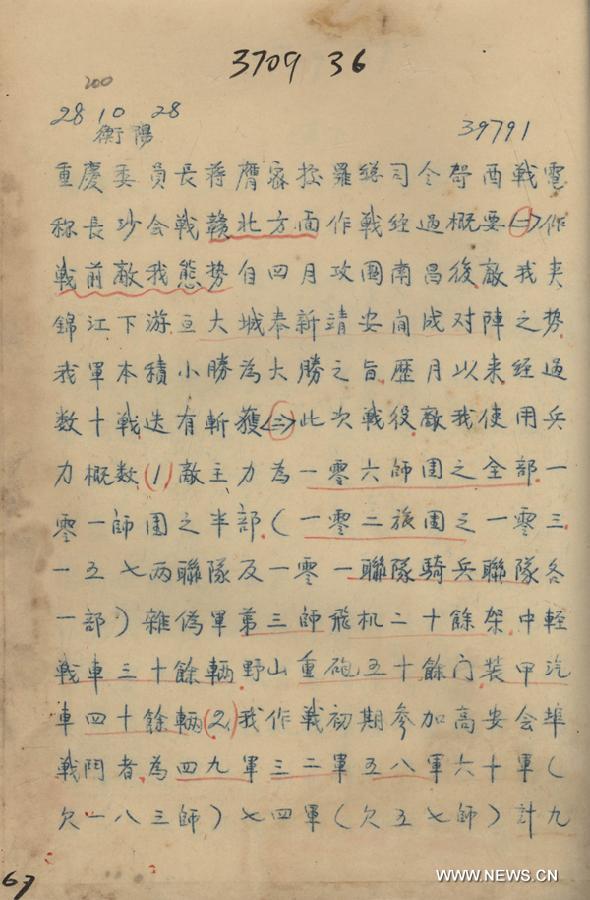 3709 36
200
28 10 28
衡陽
39791
重慶委員長蔣膺密據羅總司令智酉戰電
称長沙会戦贛北方面作戦经過概要㈠作
戦前敵我態势自四月攻圍南昌後敵我夹
錦江下游亘大城奉新靖安间成对陣之势
我軍本積小勝為大勝之旨歷月以来经過
数十戦迭有斬獲㈡此次戦役敵我使用兵
力概数(1)敵主力為一零六師團之全部一
零一師團之半部(一零二旅團之一零三
一五七两聯隊及一零一聯隊騎兵聯隊各
一部)雜偽軍第三師飛机二十餘架中軽
戦車三十餘輛野山重砲五十餘门装甲汽
車四十餘輛(2)我作戦初期参加高安会埠
戦鬥者為四九軍三二軍五八軍六十軍(
欠一八三師)七四軍(欠五七師)計九
67
WWW.NEWS.CN